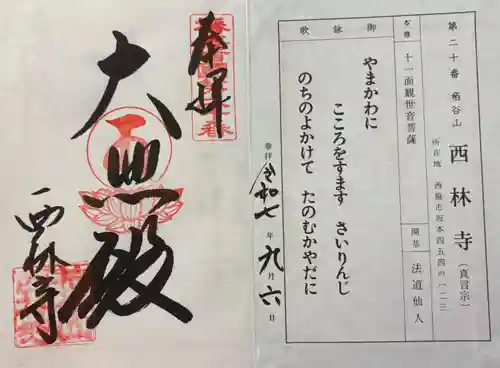 第二十番 栢谷山 西林寺(真言宗)
所在地 西脇市坂本四五四の
本尊 十一面観世音菩薩 開基 法道仙人
御詠歌
やまかわに
こころをすます さいりんじ
のちのよかけて たのむかやだに
参拝 令和七年九月六日
奉拝
大悲殿
西林寺